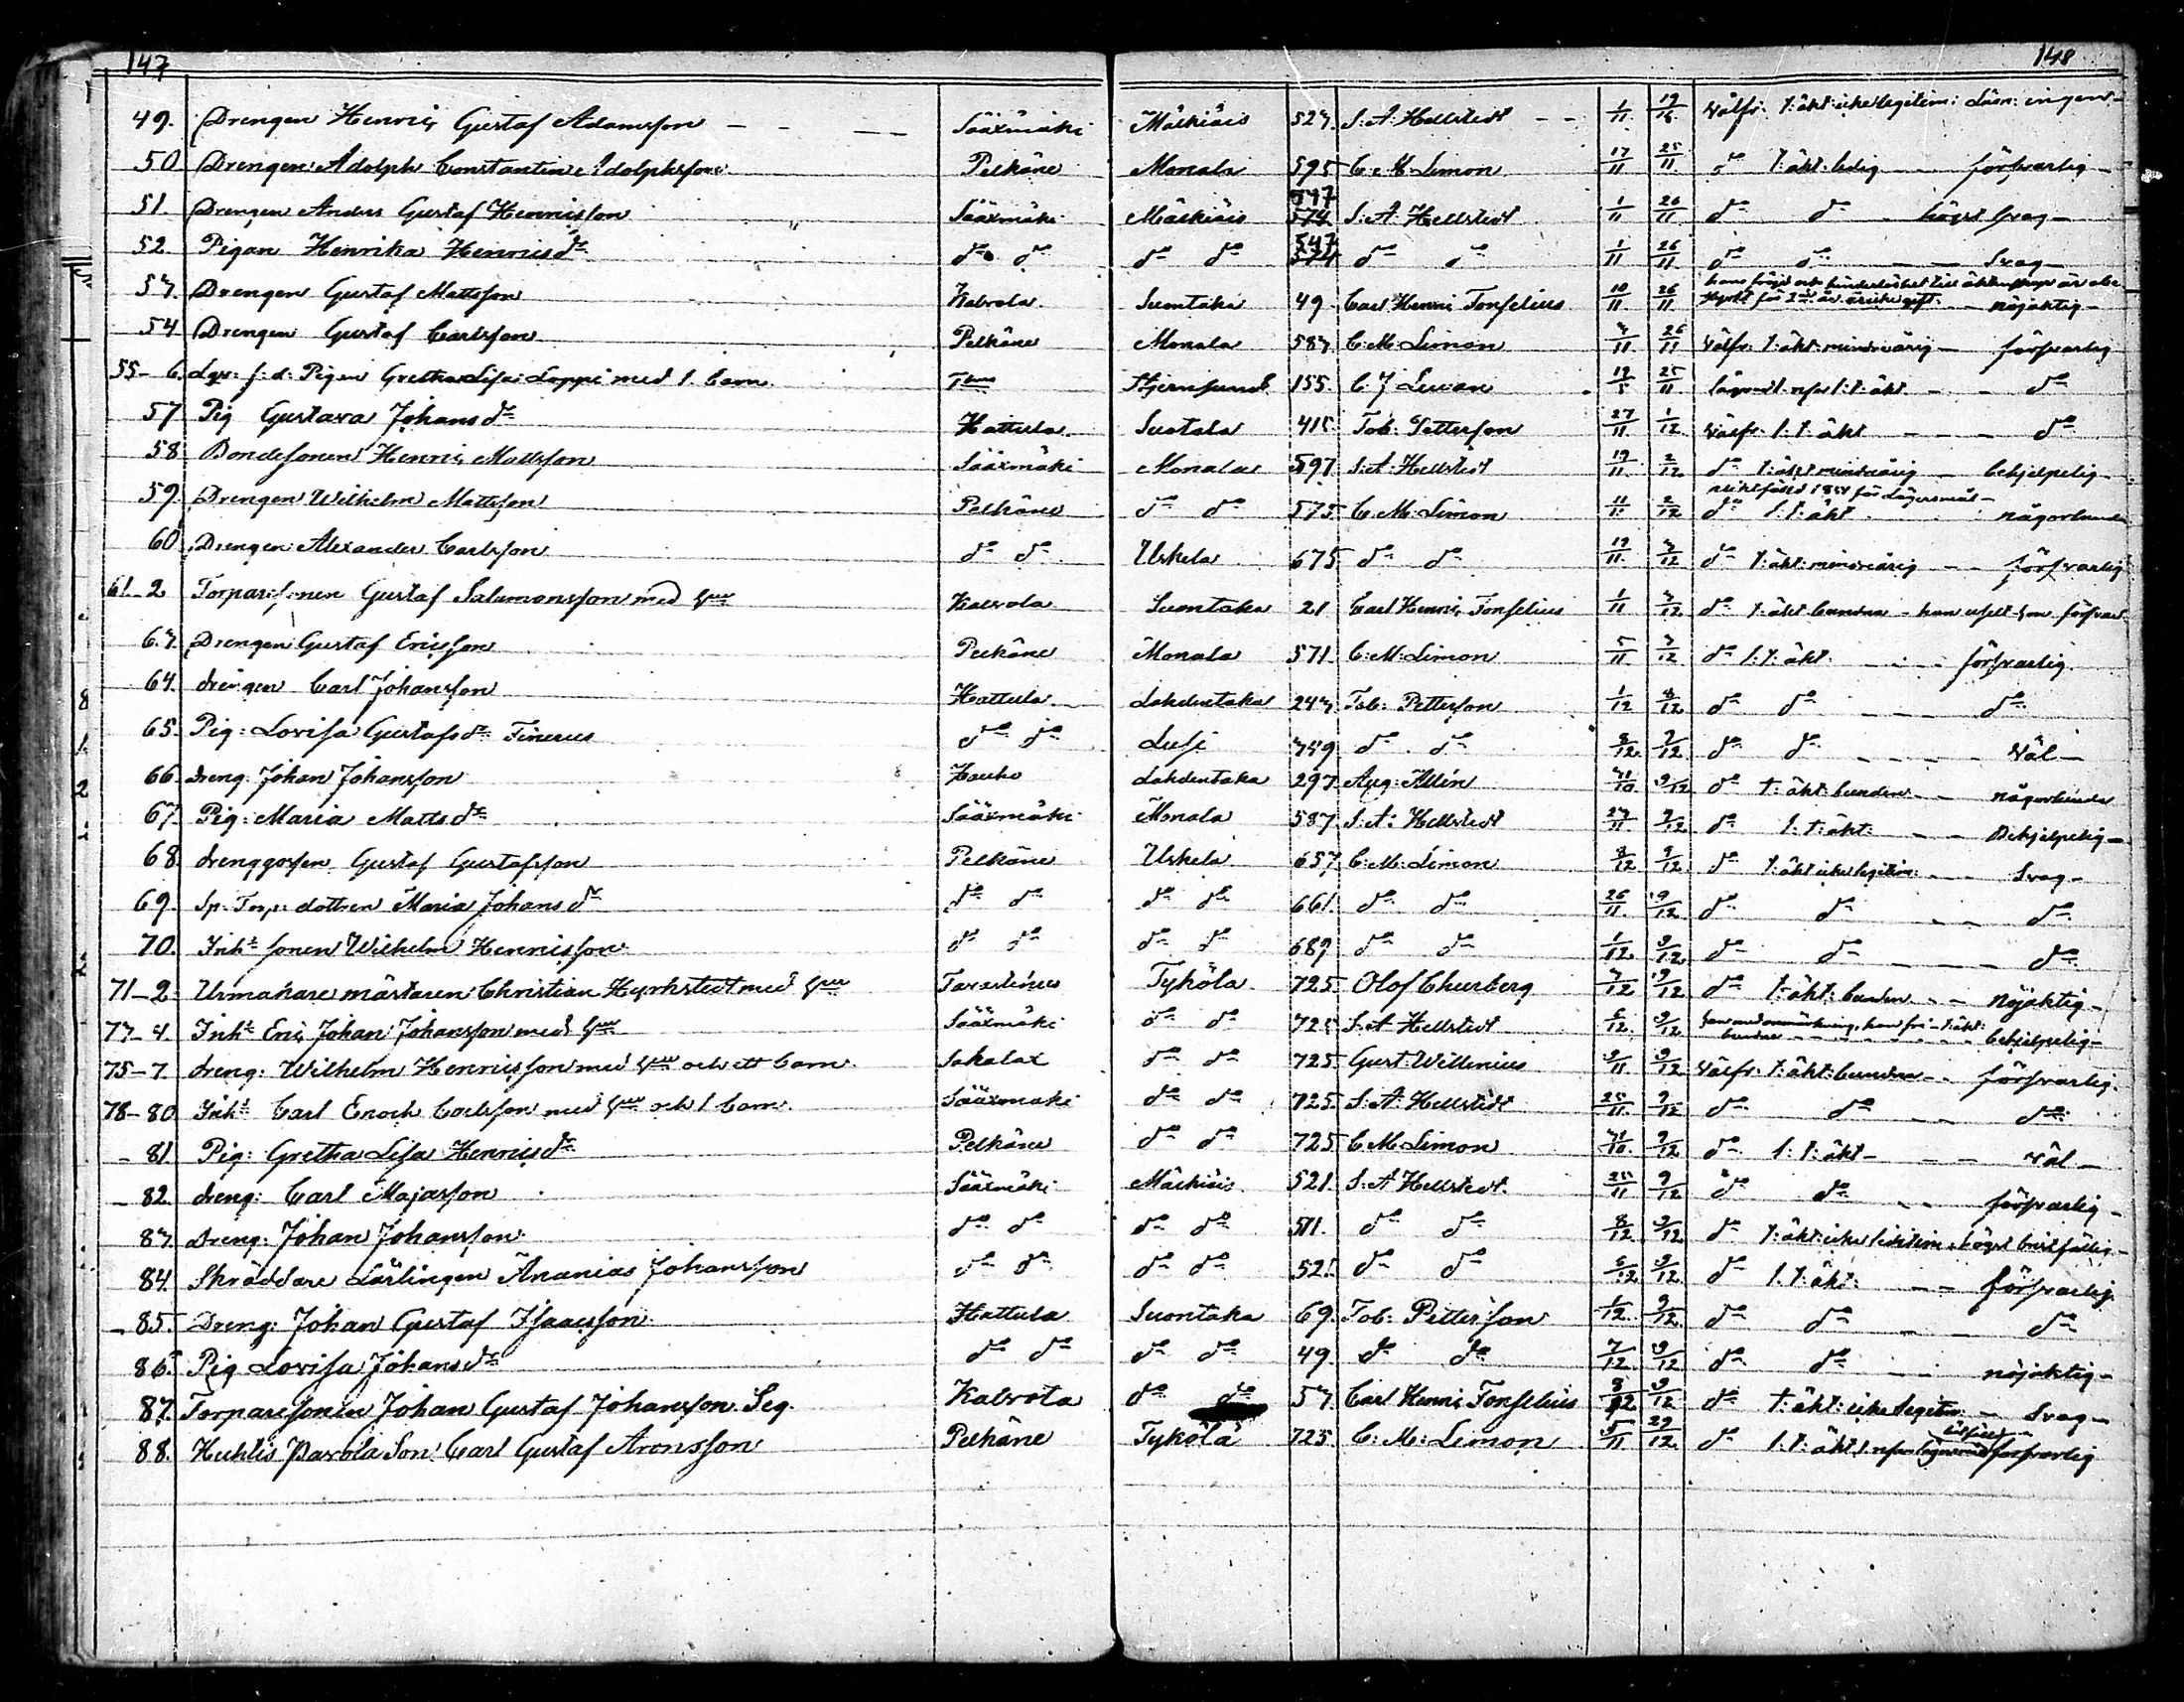 147 148
49. Drengen Henric Gustaf Adamsson Sääxmäki Mälkiäis 523 S. A. Hellstedt 1/11 19/12 välfr: t: äkt: icke legitim: Läsn: ingen
50 Drengen Adolph Constantin Adolphsson Pelkäne Monala 595 C. M. Limon 17/11 25/11 do t: äkt: ledig försvarlig
51. Drengen Anders Gustaf Henricsson Sääxmäki Mälkiäis 547 574 S. A. Hellstedt 1/11 26/11 do do högst svag
52. Pigan Henrika Henricsdr do do do do 547 574 do do 1/11 26/11 do do Svag
53. Drengen Gustaf Mattsson Kalvola Suontaka 49. Carl Henric Tonselius 10/11 26/11 hans frägd och hinderlöshet till äktenskap är är icke gift. nöjaktig
54 Drengen Gustaf Carlsson Pelkäne Monala 583 C. M. Limon 3/11 26/11 välfr: t: äkt: minderårig försvarlig
55-6. f: d: Pigan Gretha Lisa Loppi med 1. barn. Tbus Stjernsund 155. C J 19/5 25/11 t: äkt. do
57 Pig Gustava Johansdr Hattula Suotala 415 Tob: Petterson 27/11 1/12 välfr: l: t: äkt do
58 Bondesonen Henric Mattsson Sääxmäki Monala 597 S. A. Hellstedt 19/11 2/12 do t: äkt minderårig behjelpelig
59. Drengen Wilhelm Mattsson Pelkäne do do 575 C. M. Limon 11/11 2/12 för Lägersmål do l: t: äkt någorlunda
60 Drengen Alexander Carlsson do do Uskela 675 do do 19/11 3/12 do t: äkt: minderårig försvarlig
61-2 Torparesonen Gustaf Salomonsson med hu Kalvola Suontaka 21 Carl Henric Tonselius 1/11 3/12 do t: äkt bundne
63. Drengen Gustaf Ericsson Pelkäne Monala 571. C: M: Limon 5/11 3/12 do l: t: äkt: försvarlig.
64. drengen Carl Johansson Hattula Lahdentaka 243 Tob: Petterson 1/12 4/12 do do do
65. Pig: Lovisa Gustafsdr Finerus do do Lusi 349 do do 3/12 7/12 do do väl
66. dreng: Johan Johansson Hauho Lahdentaka 297 Aug: Allén 31/10 9/12 do t: äkt: bunden någorlunda
67. Pig: Maria Mattsdr Sääxmäki Monala 587 S. A: Hellstedt 27/11 9/12 do l: t: äkt: Behjelpelig
68 drenggossen Gustaf Gustafsson Pelkäne Uskela 657 C. M. Limon 8/12 9/12 do t: äkt icke legitim: Svag
69. Sp: Torp: dottren Maria Johansdr do do do do 661. do do 26/11 9/12 do do do
70. Inhs sonen Wilhelm Henricsson do do do do 689 do do 1/12 9/12 do do do
71-2. Urmakare mästaren Christian Hyrkstedt med hu Tavastehus Tyköla 725 Olof Churberg 7/12 9/12 do t: äkt: bunden nöjaktig
73-4. Inhs Eric Johan Johansson med hu Sääxmäki do do 725 S. A Hellstedt 6/12 9/12 utan anmärkning, hon fri t: äkt: bundne behjelpelig
75-7. dreng: Wilhelm Henricsson med hu och ett barn Sahalax do do 725 Gust: Willenius 9/11 9/12 välfr: t: äkt: bundne försvarlig.
78-80 Inhs Carl Enoch Carlsson med hu och 1 barn. Sääxmäki do do 725 S. A: Hellstedt 25/11 9/12 do do do
81. Pig: Gretha Lisa Henricsdr Pelkäne do do 725 C. M Limon 31/10 9/12 do l: t: äkt väl
82. dreng: Carl Majasson Sääxmäki Mälkiäis 521. S. A Hellstedt. 25/11 9/12 do do försvarlig
83. Dreng: Johan Johansson do do do do 511. do do 8/12 9/12 do t: äkt: icke högst bristfällig
84. Skräddare Lärlingen Ananias Johansson do do do do 521 do do 6/12 9/12 do l: t: äkt: försvarlig
85. Dreng: Johan Gustaf Isaacsson Hattula Suontaka 69. Tob: Petterson 1/12 9/12 do do do
86. Pig Lovisa Johansdr do do do do 49. do do 7/12 9/12 do do nöjaktig
87. Torparesonen Johan Gustaf Johansson Seg. Kalvola do do 53 Carl Henric Tonselius 8/12 9/12 do t: äkt: icke legitim: Svag
88. Huhtis Pavola Son Carl Gustaf Aronsson Pelkäne Tyköla 725. C. M. Limon 5/11 29/12 do l: t: äkt försvarlig